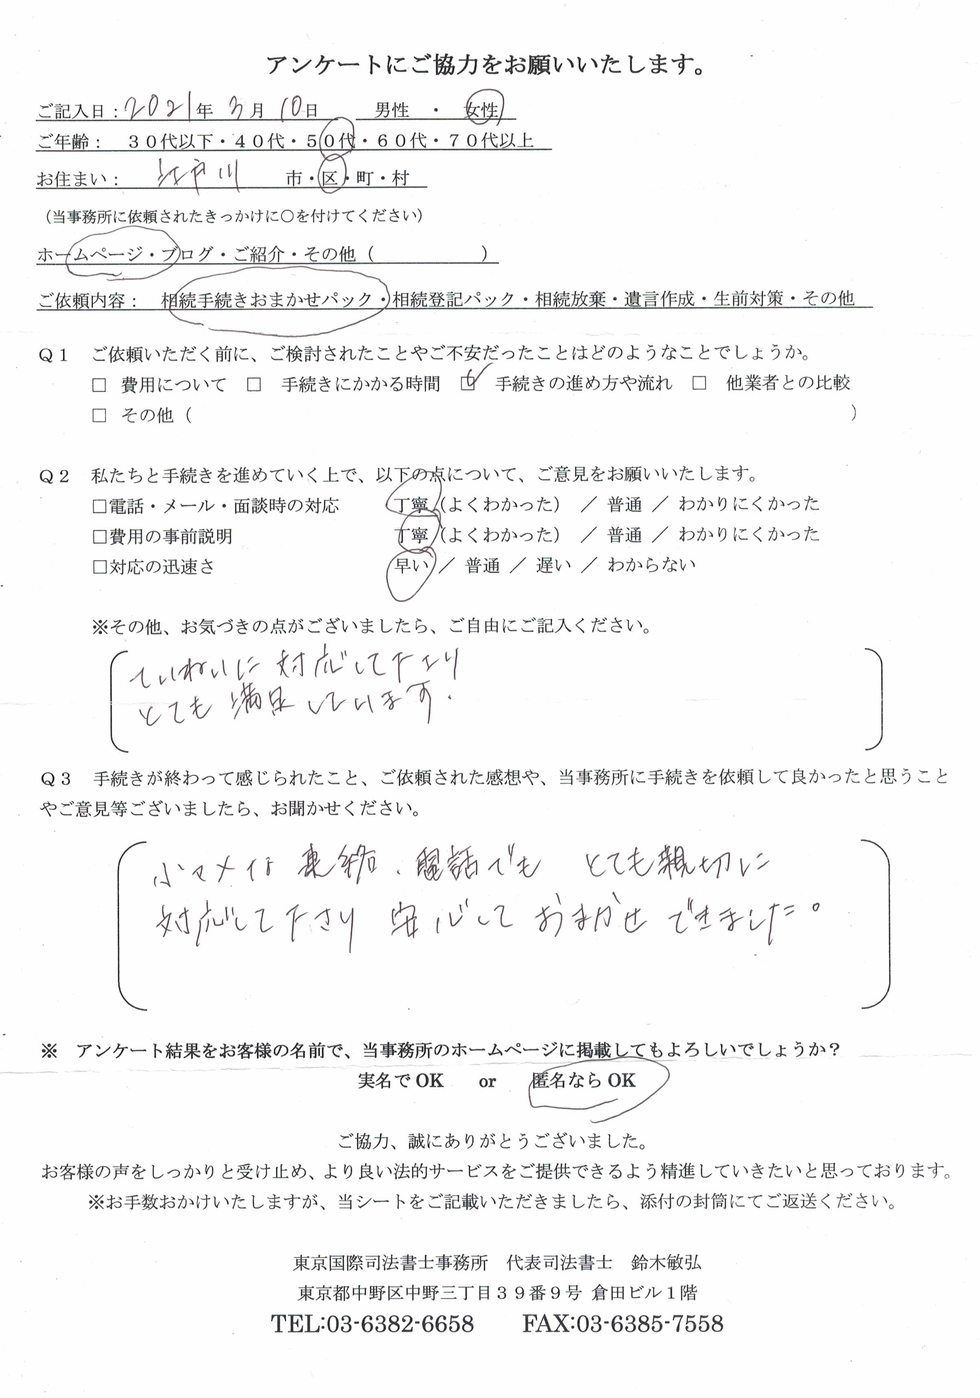 アンケートにご協力をお願いいたします。
ご記入日：2021年 3月 10日　男性 ・ 女性
ご年齢：　３０代以下・４０代・５０代・６０代・７０代以上
お住まい：　江戸川　市・区・町・村
（当事務所に依頼されたきっかけに○を付けてください）
ホームページ・ブログ・ご紹介・その他（　　　　　　）
ご依頼内容：　相続手続きおまかせパック・相続登記パック・相続放棄・遺言作成・生前対策・その他
Ｑ１　ご依頼いただく前に、ご検討されたことやご不安だったことはどのようなことでしょうか。
□ 費用について　□ 手続きにかかる時間　☑ 手続きの進め方や流れ　□ 他業者との比較
□ その他（　　　　　　）
Ｑ２　私たちと手続きを進めていく上で、以下の点について、ご意見をお願いいたします。
□電話・メール・面談時の対応　丁寧（よくわかった） ／ 普通 ／ わかりにくかった
□費用の事前説明　丁寧（よくわかった） ／ 普通 ／ わかりにくかった
□対応の迅速さ　早い ／ 普通 ／ 遅い ／ わからない
※その他、お気づきの点がございましたら、ご自由にご記入ください。
ていねいに 対応して下さり
とても 満足しています.
Ｑ３　手続きが終わって感じられたこと、ご依頼された感想や、当事務所に手続きを依頼して良かったと思うこと
やご意見等ございましたら、お聞かせください。
小マメな 連絡、電話でも とても親切に
対応して下さり 安心して おまかせ できました。
※　アンケート結果をお客様の名前で、当事務所のホームページに掲載してもよろしいでしょうか？
実名で OK　or　匿名なら OK
ご協力、誠にありがとうございました。
お客様の声をしっかりと受け止め、より良い法的サービスをご提供できるよう精進していきたいと思っております。
※お手数おかけいたしますが、当シートをご記載いただきましたら、添付の封筒にてご返送ください。
東京国際司法書士事務所　代表司法書士　鈴木敏弘
東京都中野区中野三丁目３９番９号 倉田ビル１階
TEL:03-6382-6658　FAX:03-6385-7558